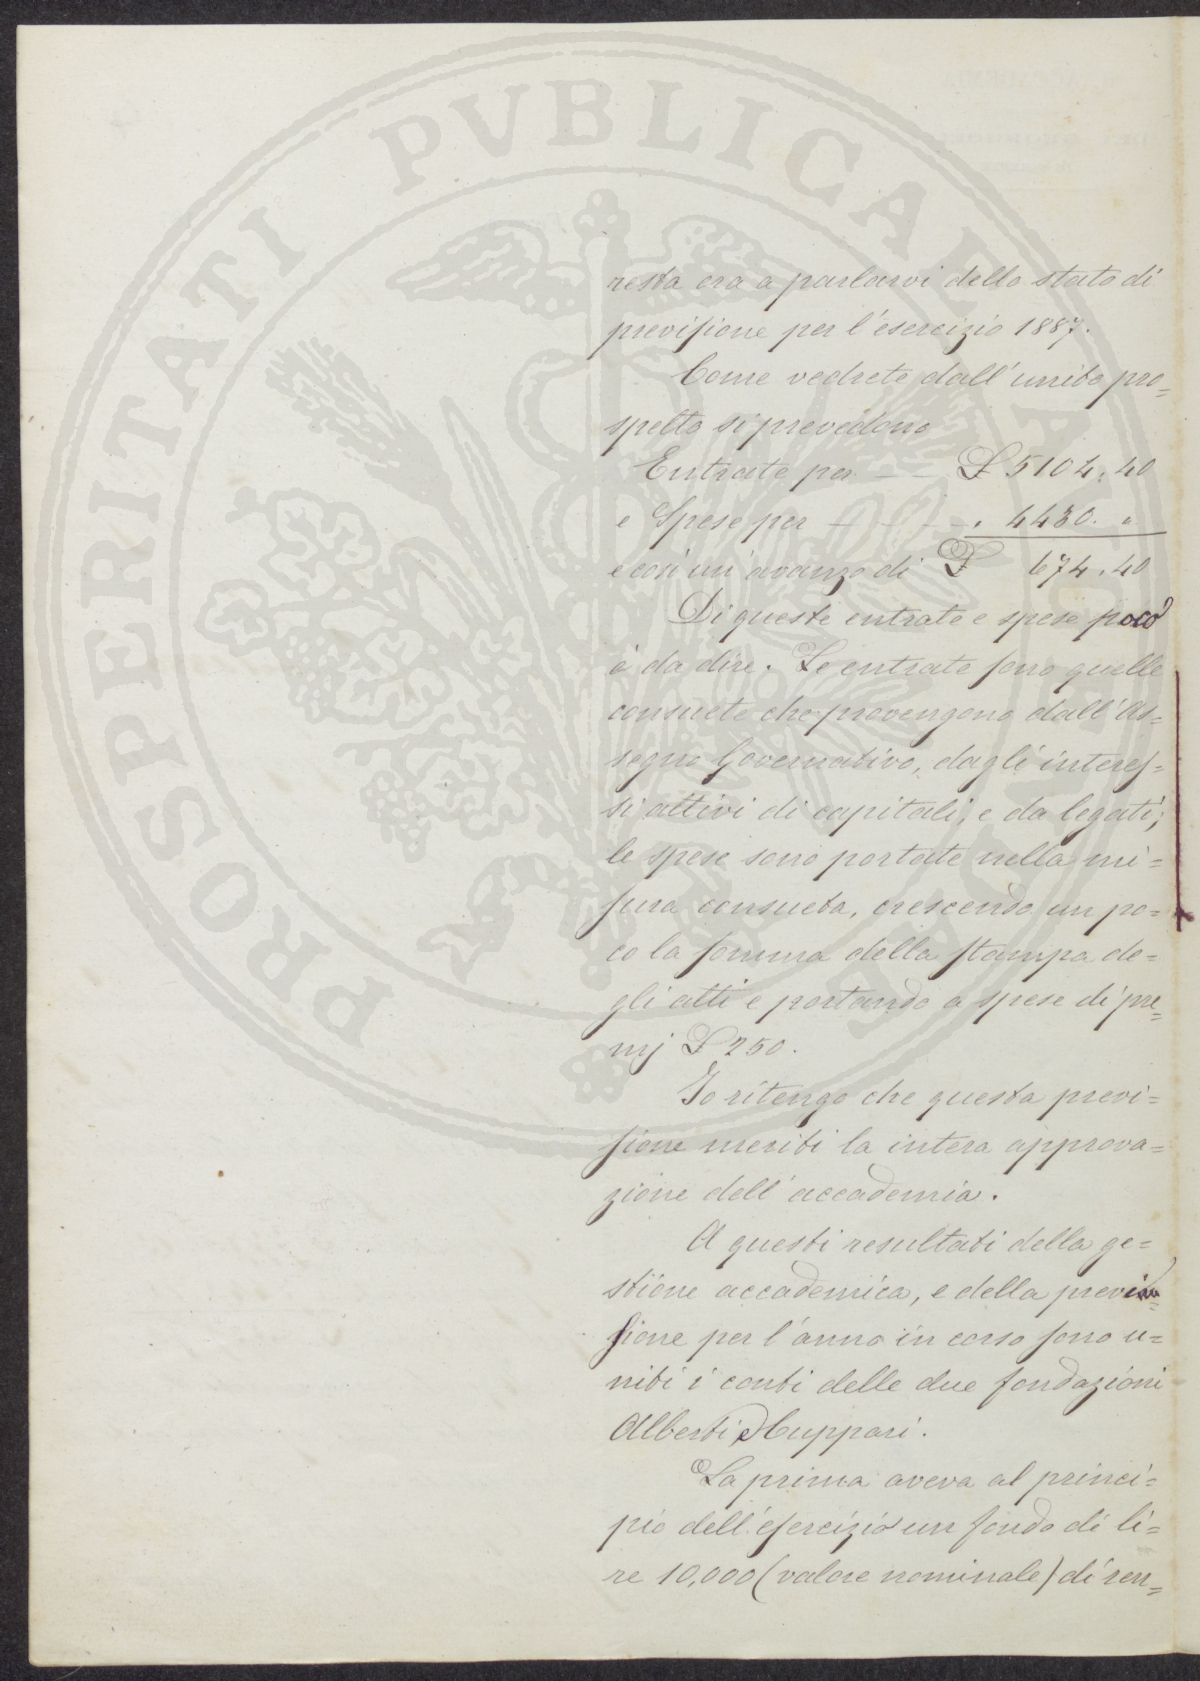 PROSPERITATI PVBLICAE AVGENDAE
resta ora a parlarvi dello stato di
previsione per l'esercizio 1887.
Come vedrete dall'unito pro=
spetto si prevedono
Entrate per — — £ 5104. 40
e Spese per — — — — " 4430. "
e così un avanzo di £ 674. 40
Di queste entrate e spese poco
è da dire. Le entrate sono quelle
consuete che provengono dall'As=
segno Governativo, dagli interes=
si attivi di capitali, e da legati;
le spese sono portate nella mi=
sura consueta, crescendo un po=
co la somma della stampa de=
gli atti e portando a spese di pre=
mj £ 250.
Io ritengo che questa previ=
sione meriti la intera approva=
zione dell'accademia.
A questi resultati della ge=
stione accademica, e della previ=
sione per l'anno in corso sono u=
niti i conti delle due fondazioni
Alberti e Cuppari.
La prima aveva al princi=
pio dell'esercizio un fondo di li=
re 10,000 (valore nominale) di ren=